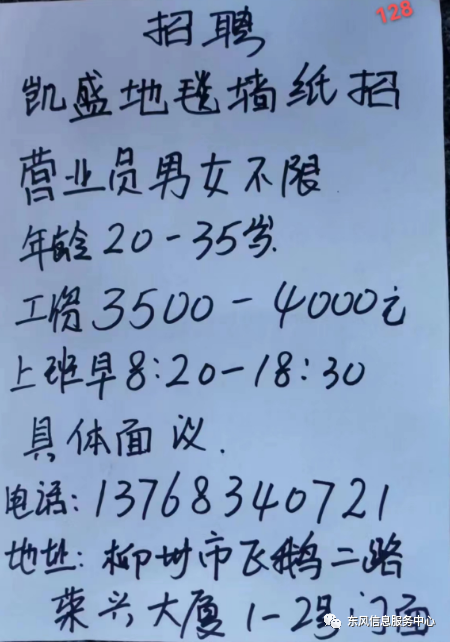 128
招聘
凯盛地毯墙纸招
营业员男女不限
年龄20-35岁.
工资3500-4000元
上班早8:20-18:30
具体面议.
电话:13768340721
地址:柳州市飞鹅二路
荣兴大厦1-2号门面
东风信息服务中心